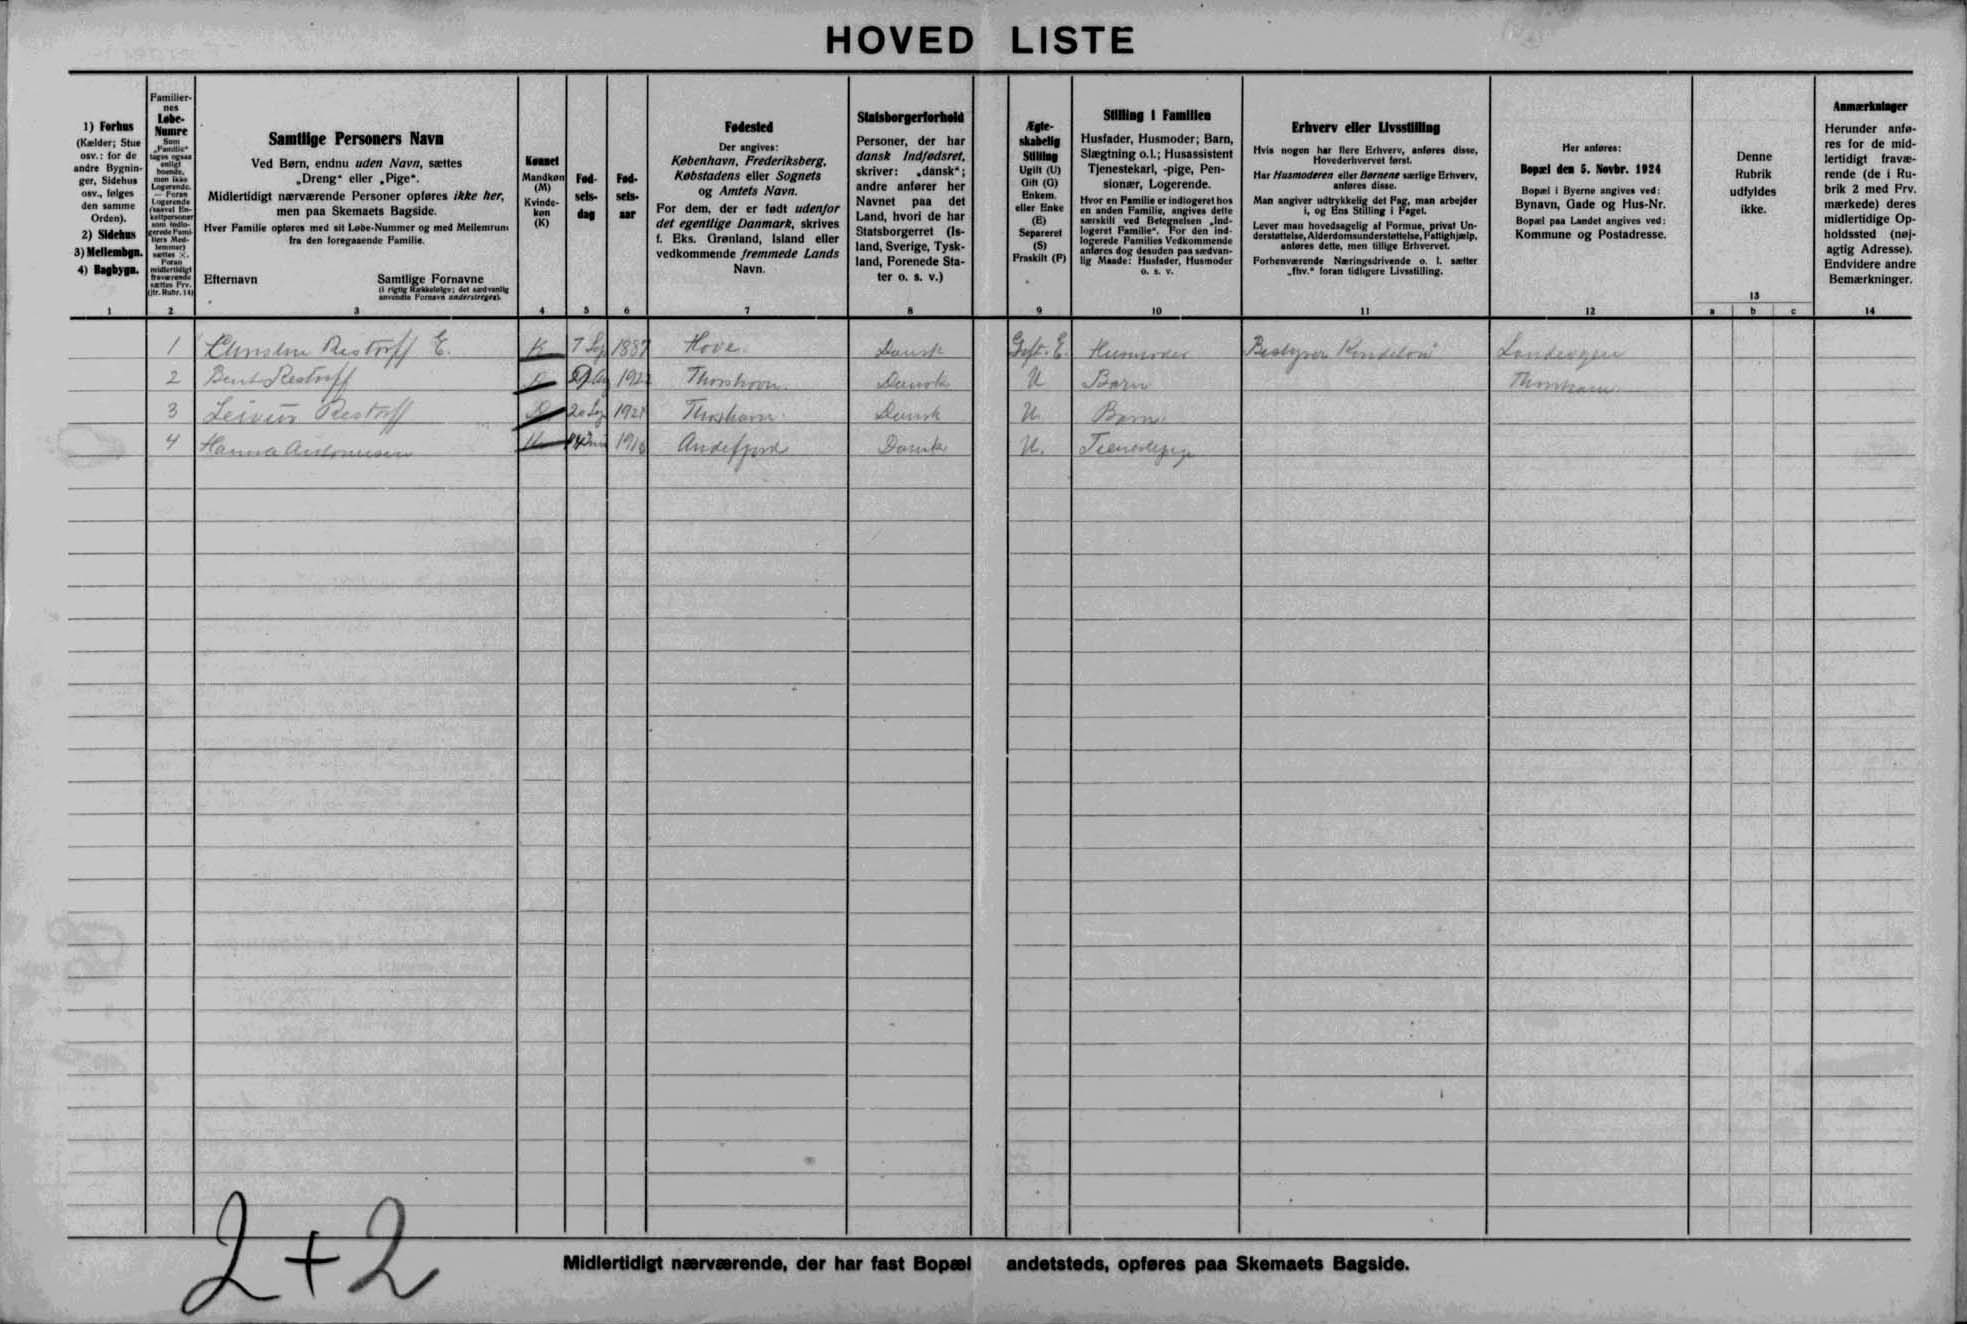 HOVED LISTE
1) Forhus
(Kælder; Stue
osv.: for de
andre Bygnin-
ger, Sidehus
osv., følges
den samme
Orden).
2) Sidehus
3) Mellembgn.
4) Bagbygn.
1
Familier-
nes
Løbe-
Numre
Som
„Familie“
tages ogsaa
enligt
boende,
men ikke
Logerende.
— Foran
Logerende
(saavel En-
keltpersoner
som indlo-
gerede Fami-
liers Med-
lemmer)
sættes ×.
Foran
midlertidigt
fraværende
sættes Frv.
(jfr. Rubr. 14)
2
Samtlige Personers Navn
Ved Børn, endnu uden Navn, sættes
„Dreng“ eller „Pige“.
Midlertidigt nærværende Personer opføres ikke her,
men paa Skemaets Bagside.
Hver Familie opføres med sit Løbe-Nummer og med Mellemrum
fra den foregaaende Familie.
Efternavn Samtlige Fornavne
(i rigtig Rækkefølge; det sædvanlig
anvendte Fornavn understreges).
3
Kønnet
Mandkøn
(M)
Kvinde-
køn
(K)
4
Fød-
sels-
dag
5
Fød-
sels-
aar
6
Fødested
Der angives:
København, Frederiksberg,
Købstadens eller Sognets
og Amtets Navn.
For dem, der er født udenfor
det egentlige Danmark, skrives
f. Eks. Grønland, Island eller
vedkommende fremmede Lands
Navn.
7
Statsborgerforhold
Personer, der har
dansk Indfødsret,
skriver: „dansk“;
andre anfører her
Navnet paa det
Land, hvori de har
Statsborgerret (Is-
land, Sverige, Tysk-
land, Forenede Sta-
ter o. s. v.)
8
Ægte-
skabelig
Stilling
Ugift (U)
Gift (G)
Enkem.
eller Enke
(E)
Separeret
(S)
Fraskilt (F)
9
Stilling i Familien
Husfader, Husmoder; Barn,
Slægtning o.l.; Husassistent
Tjenestekarl, -pige, Pen-
sionær, Logerende.
Hvor en Familie er indlogeret hos
en anden Familie, angives dette
særskilt ved Betegnelsen „Ind-
logeret Familie“. For den ind-
logerede Families Vedkommende
anføres dog desuden paa sædvan-
lig Maade: Husfader, Husmoder
o. s. v.
10
Erhverv eller Livsstilling
Hvis nogen har flere Erhverv, anføres disse,
Hovederhvervet først.
Har Husmoderen eller Børnene særlige Erhverv,
anføres disse.
Man angiver udtrykkelig det Fag, man arbejder
i, og Ens Stilling i Faget.
Lever man hovedsagelig af Formue, privat Un-
derstøttelse, Alderdomsunderstøttelse, Fattighjælp,
anføres dette, men tillige Erhvervet.
Forhenværende Næringsdrivende o. l. sætter
„fhv.“ foran tidligere Livsstilling.
11
Her anføres:
Bopæl den 5. Novbr. 1924
Bopæl i Byerne angives ved:
Bynavn, Gade og Hus-Nr.
Bopæl paa Landet angives ved:
Kommune og Postadresse.
12
Denne
Rubrik
udfyldes
ikke.
13
a b c
Anmærkninger
Herunder anfø-
res for de mid-
lertidigt fravæ-
rende (de i Ru-
brik 2 med Frv.
mærkede) deres
midlertidige Op-
holdssted (nøj-
agtig Adresse).
Endvidere andre
Bemærkninger.
14
1 Restorff E. K 7 Sep 1887 Hove Dansk E. Husmoder Bestyrer
2 Bent Restorff Thorshavn Dansk U Barn Thorshavn
3 Restorff 20 Thorshavn Dansk U. Barn
4 Hanna Andefjord Dansk U.
2+2
Midlertidigt nærværende, der har fast Bopæl andetsteds, opføres paa Skemaets Bagside.